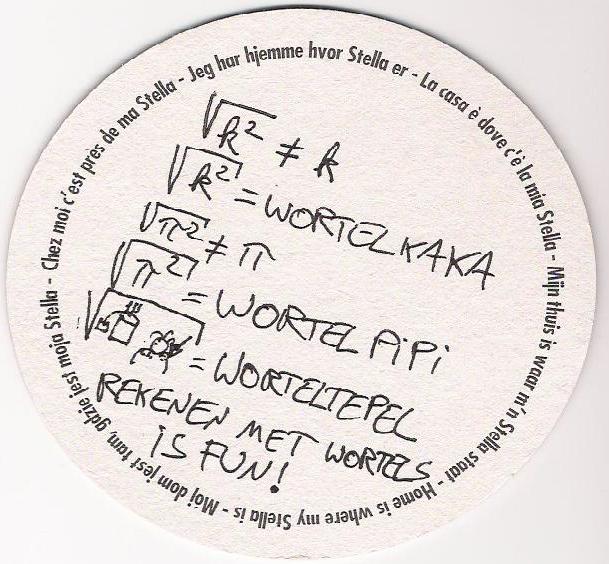 Chez moi c'est près de ma Stella - Jeg har hjemme hvor Stella er - La casa è dove c'è la mia Stella - Mijn thuis is waar m'n Stella staat - Home is where my Stella is - Moj dom jest tam, gdzie jest moja Stella -
√k² ≠ k
√k² = WORTELKAKA
√π² ≠ π
√π² = WORTEL PiPi
= WORTELTEPEL
REKENEN MET WORTELS
iS FUN!